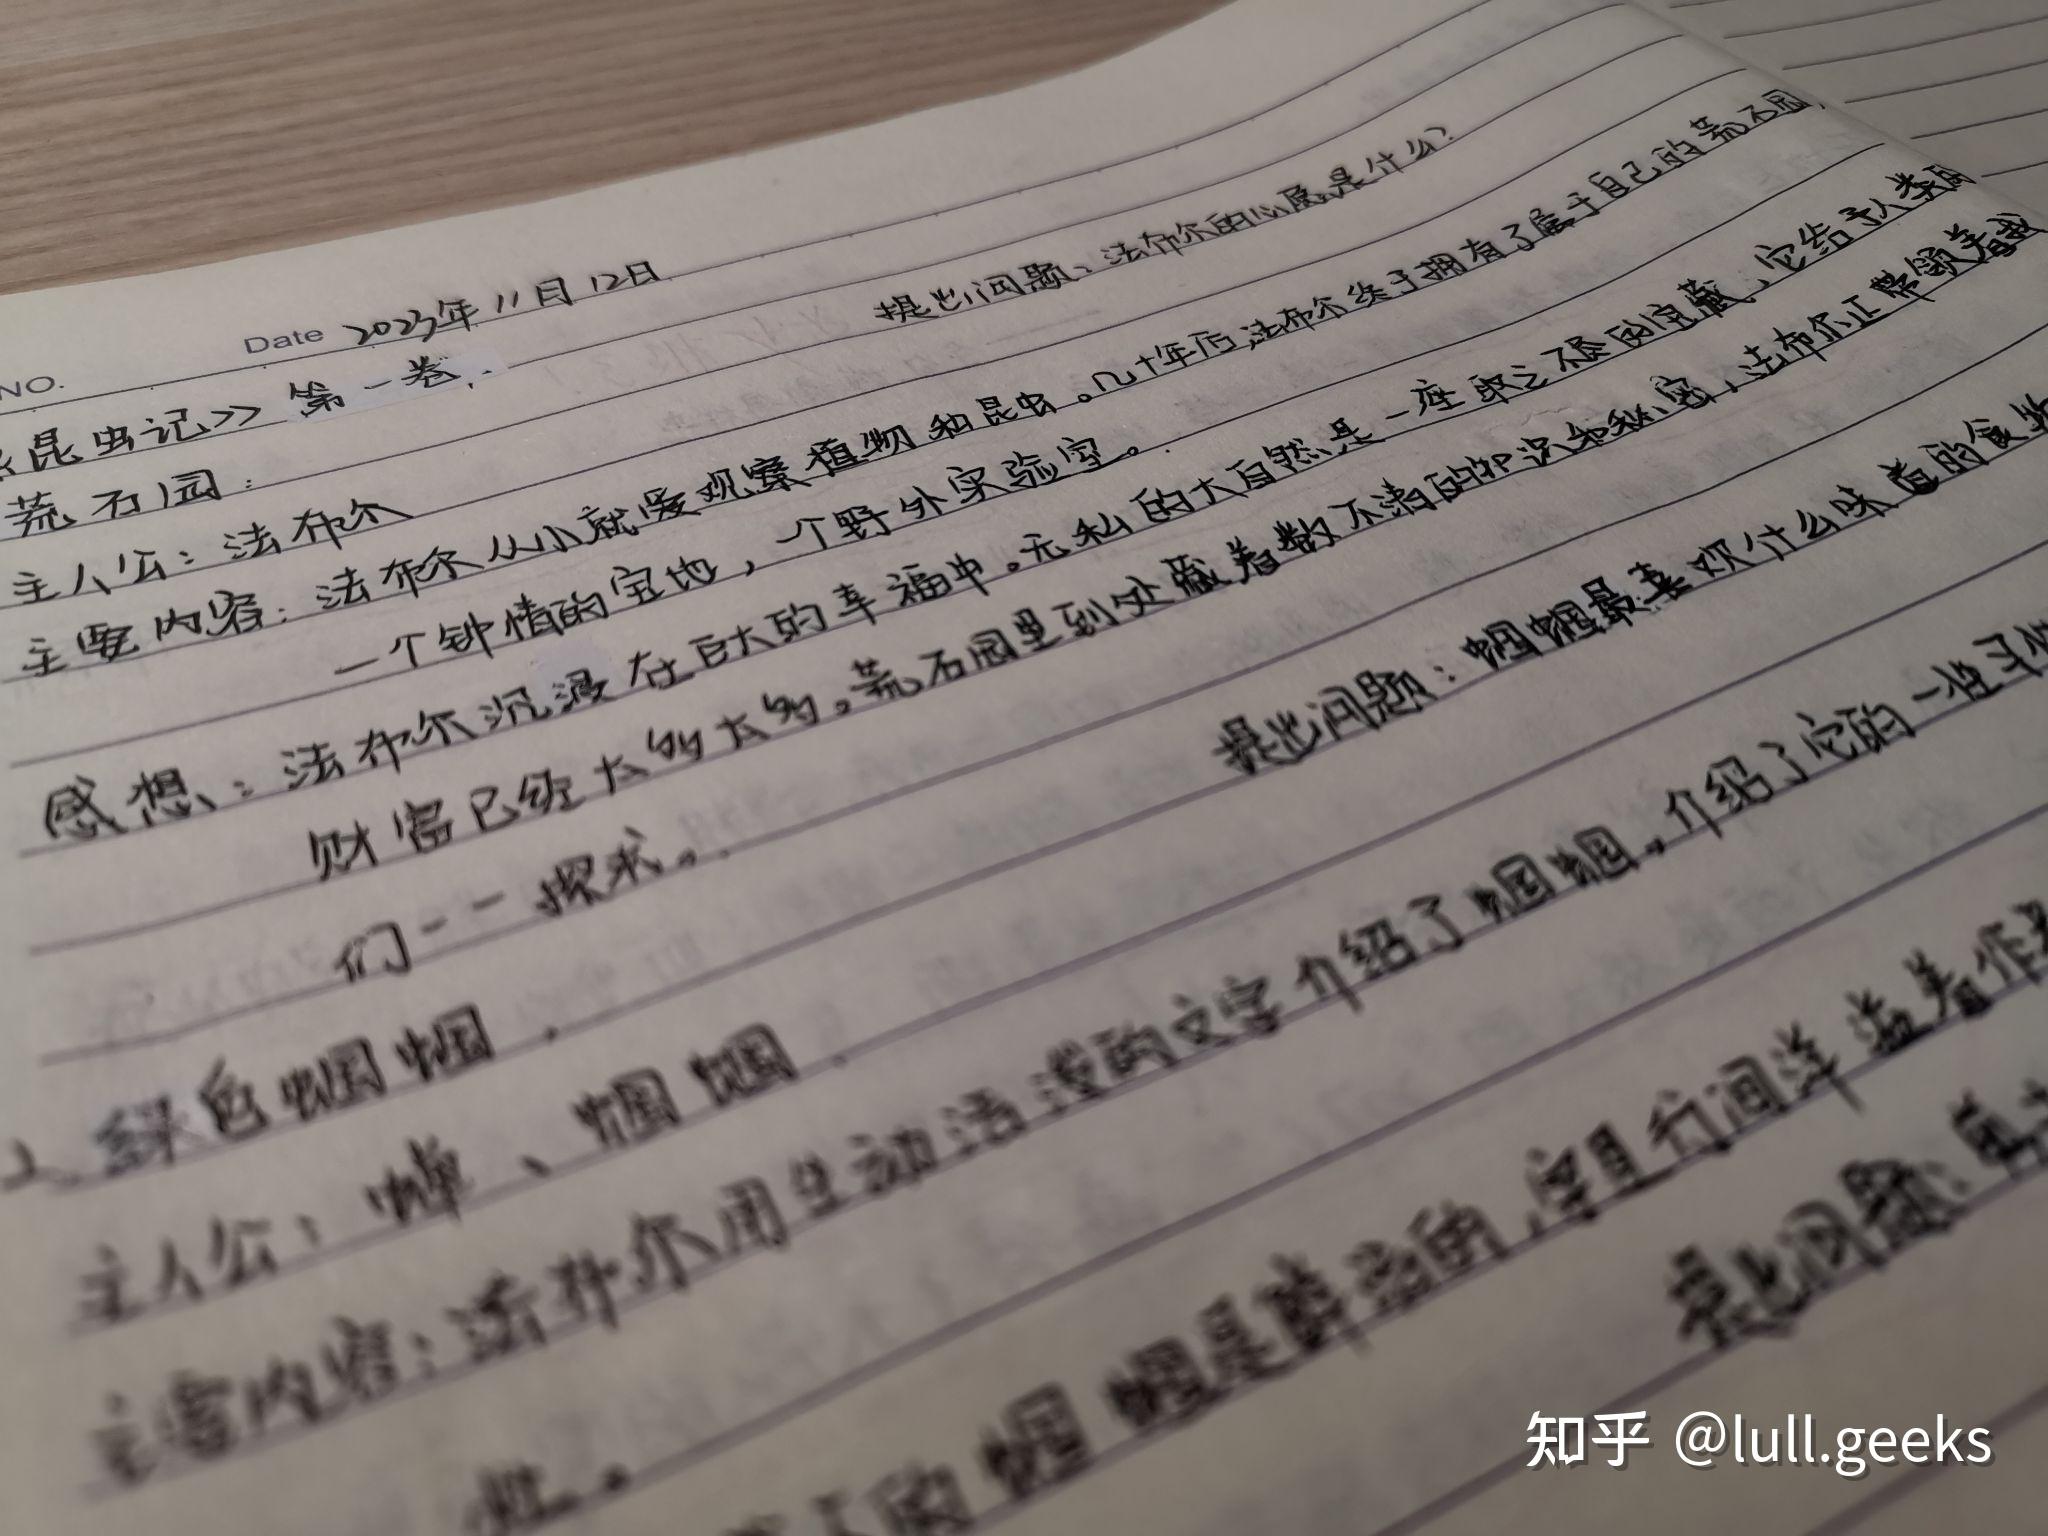 NO.
Date 2023年11月12日
昆虫记>> 第一卷.
提出问题:法布尔的心愿是什么?
荒石园:
主人公:法布尔
主要内容:法布尔从小就爱观察植物和昆虫。几十年后,法布尔终于拥有了属于自己的荒石园,
一个钟情的宝地,一个野外实验室。
感想:法布尔沉浸在巨大的幸福中。无私的大自然是一座取之不尽的宝藏,它给予人类的
财富已经太多太多。荒石园里到处藏着数不清的知识和秘密,法布尔正带领着我
们一一探求。
提出问题:蝈蝈最喜欢什么味道的食物
2、绿色蝈蝈.
主人公:蝉、蝈蝈.
主要内容:法布尔用生动活泼的文字介绍了蝈蝈,介绍了它的一些习性
性。
的蝈蝈是鲜活的,字里行间洋溢着作者
提出问题:
知乎 @lull.geeks